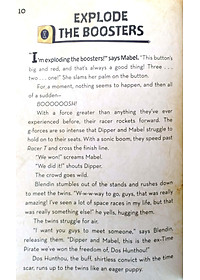 10
EXPLODE
THE BOOSTERS
"I'm exploding the boosters!" says Mabel. "This button's
big and red, and that's always a good thing! Three . . .
two . . . one!" She slams her palm on the button.
For a moment, nothing seems to happen, and then all
of a sudden—
BOOOOOOSH!
With a force greater than anything they've ever
experienced before, their racer rockets forward. The
g-forces are so intense that Dipper and Mabel struggle to
hold on to their seats. With a sonic boom, they speed past
Racer 7 and cross the finish line.
"We won!" screams Mabel.
"We did it!" shouts Dipper.
The crowd goes wild.
Blendin stumbles out of the stands and rushes down
to meet the twins. "W-w-w-way to go, guys, that was really
amazing! I've seen a lot of space races in my life, but that
was really something else!" he yells, hugging them.
The twins struggle for air.
"I want you guys to meet someone," says Blendin,
releasing them. "Dipper and Mabel, this is the ex-Time
Pirate we've won the freedom of, Dos Hunthou!"
Dos Hunthou, the buff, shirtless convict with the time
scar, runs up to the twins like an eager puppy.